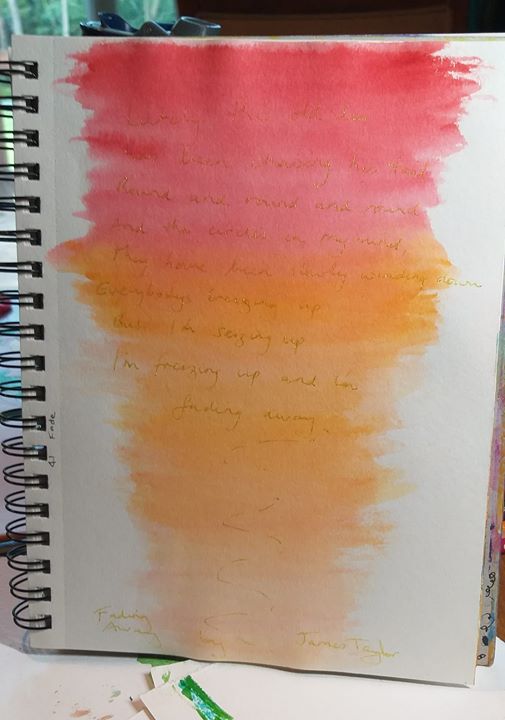 Lately the old
has been chasing his tail
Round and round and round
And the circles in my mind,
They have been slowly winding down
Everybody's breezing up
But I'm seizing up
I'm freezing up and I'm
fading away.
Fading
Away
by James Taylor
41 Fade